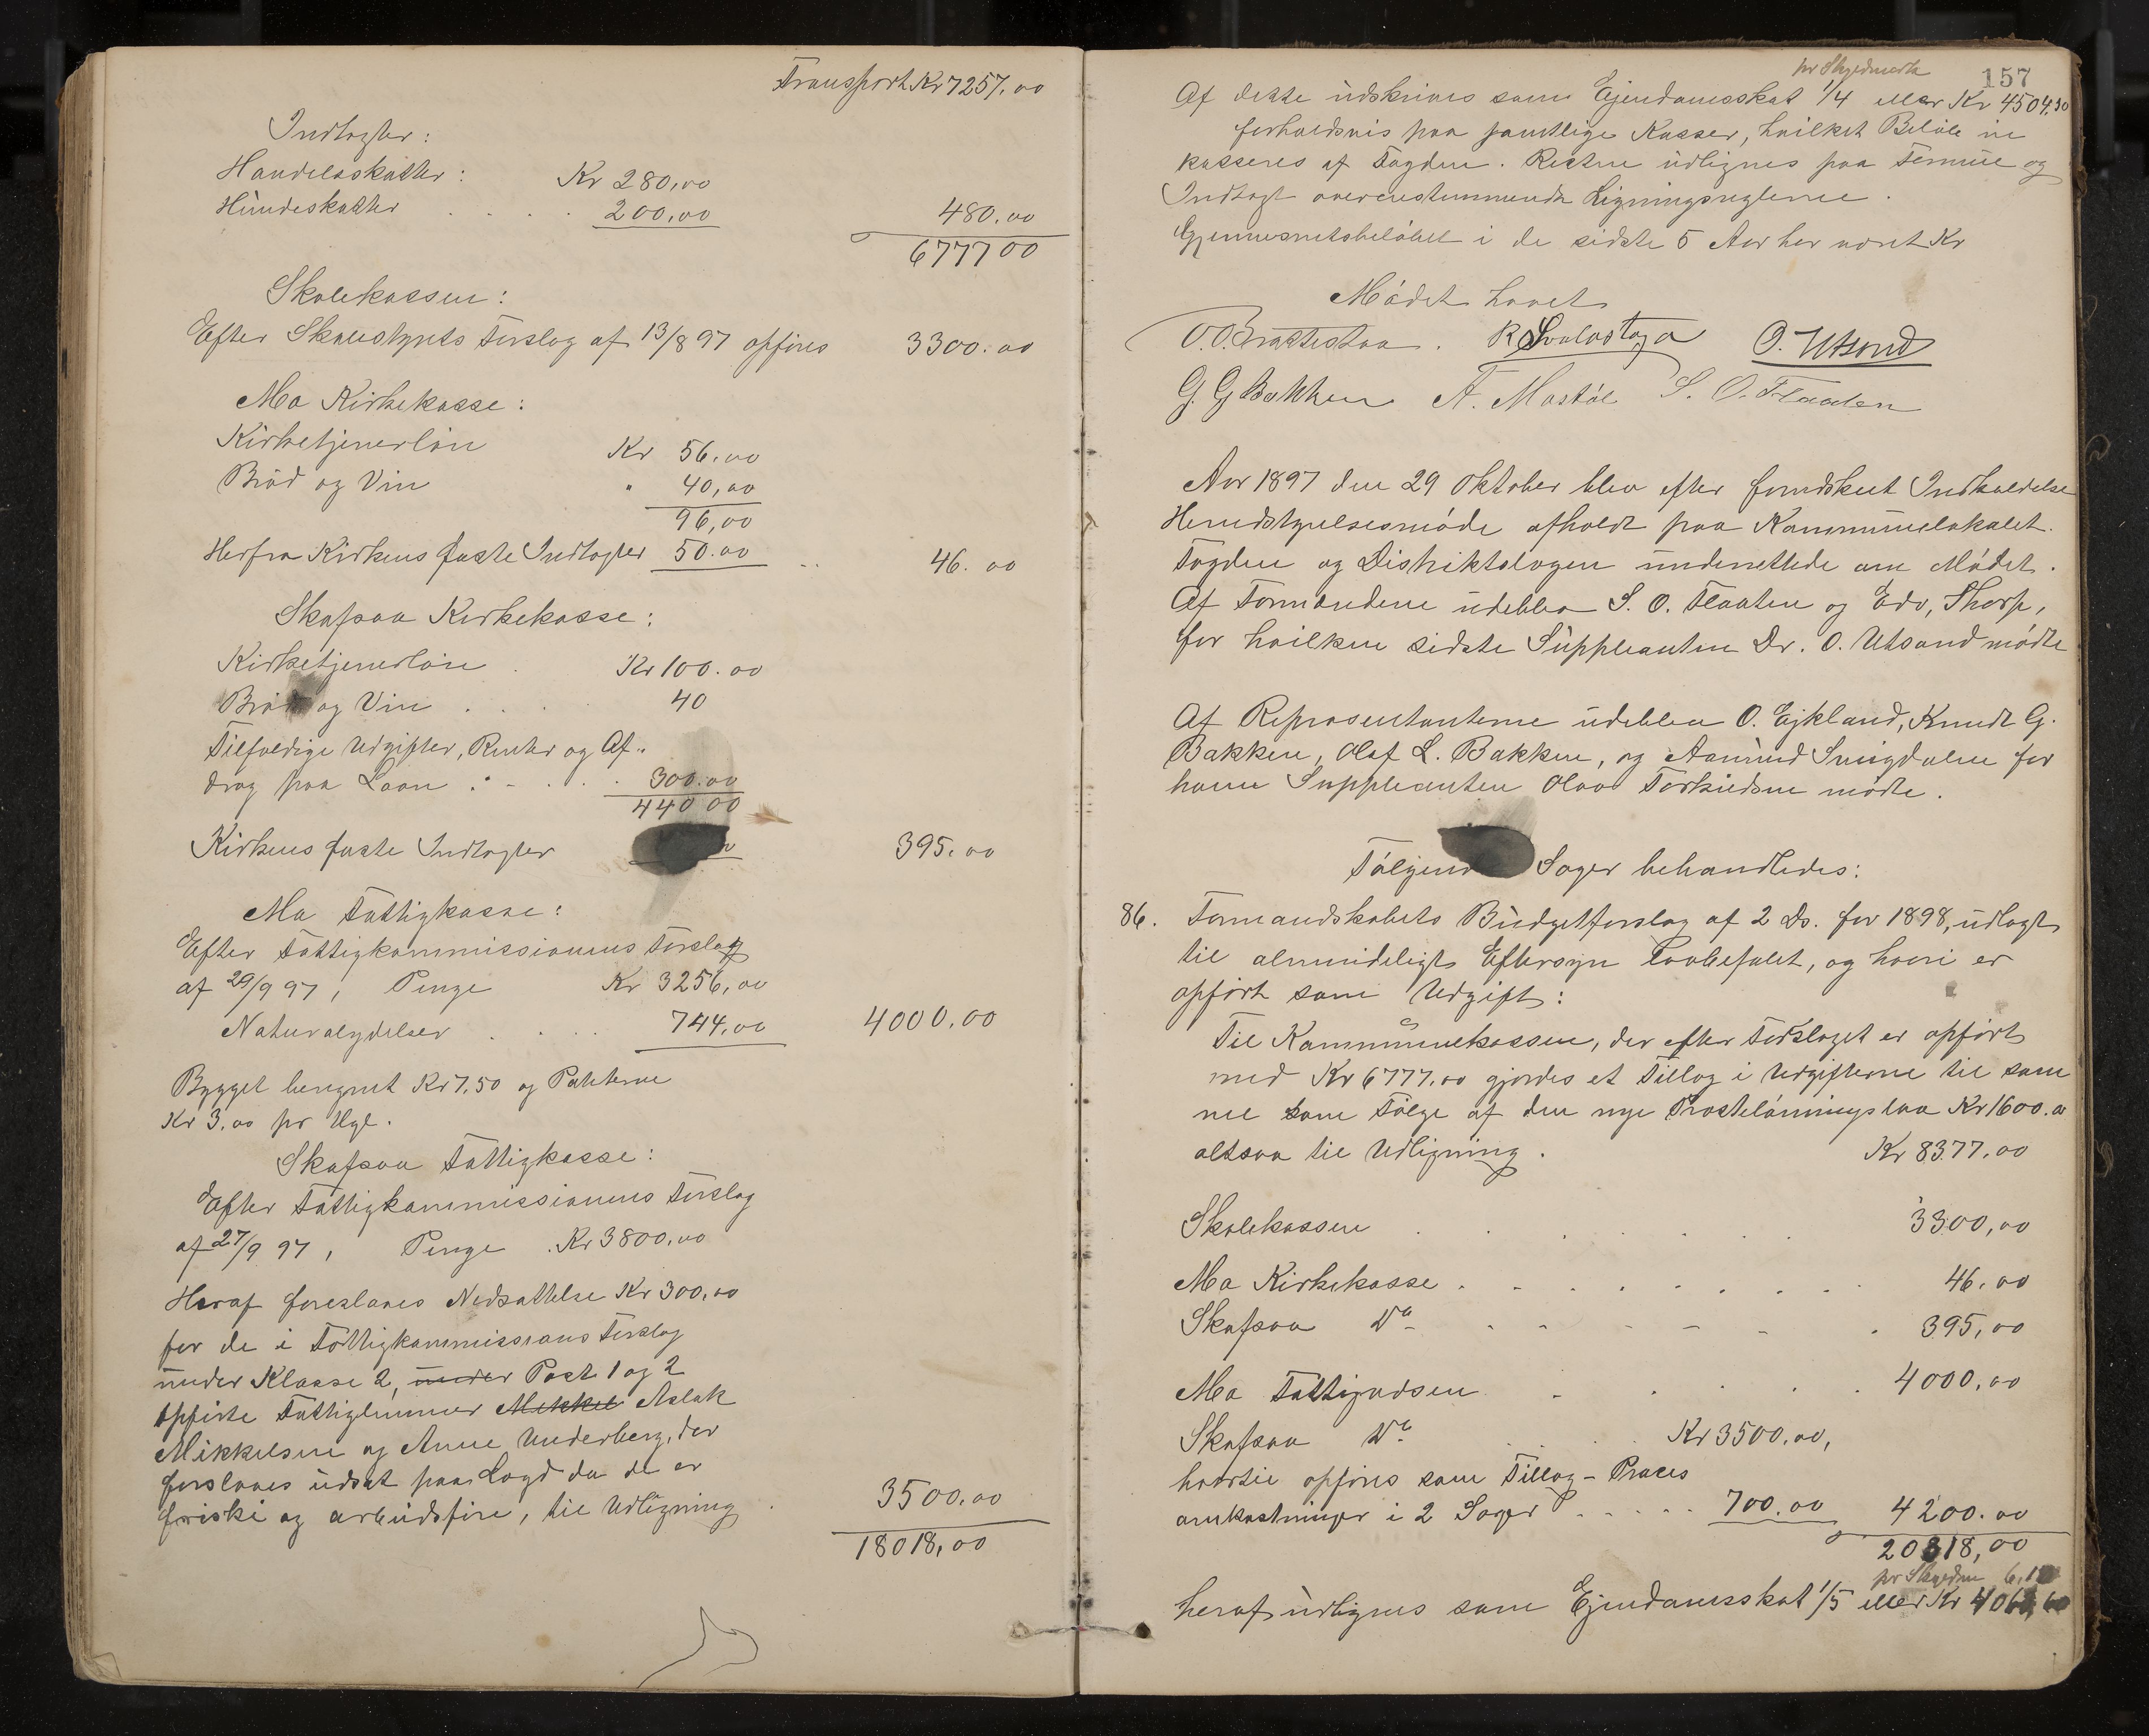 Transport Kr 7257.00
Indtægter:
Handelsskatter: Kr 280,00
Hundeskatter 200,00 480.00
6777 00
Skolekassen:
Efter Skolestyrets Forslag af 13/8 97 opføres 3300.00
Mo Kirkekasse:
Kirketjenerløn Kr 56.00
Brød og Vin " 40,00
96,00
Herfra Kirkens faste Indtægter 50.00 46.00
Skafsaa Kirkekasse:
Kirketjenerløn Kr 100.00
Brød og Vin 40
Tilfældige Udgifter, Renter og Af-
drag paa Laan 300.00
440 00
Kirkens faste Indtægter 395.00
Mo Fattigkasse:
Efter Fattigkommissionens Forslag
af 29/9 97, Penge Kr 3256,00
Naturalydelser 744,00 4000.00
Bygget beregnet Kr 7,50 og Poteterne
Kr 3,00 pr Hgl.
Skafsaa Fattigkasse:
Efter Fattigkommissionens Forslag
af 27/9 97, Penge Kr 3800,00
Heraf foreslaaes Nedsættelse Kr 300,00
for de i Fattigkommissions Forslag
under Klasse 2, under Post 1 og 2
opførte Fattiglemmer Mikkel Aslak
Mikkelsen og Anne Underberg, der
forslaaes udsat paa Lægd da de er
friske og arbeidsføre, til Udligning 3500.00
18018,00
157
Af dette udskrives som Ejendomsskat 1/4 eller Kr 4504,50
forholdsvis paa samtlige Kasser, hvilket Beløb in
kasseres af Fogden. Resten udlignes paa Formue og
Indtægt overensstemmende Ligningsreglerne.
Gjennemsnitsbeløbet i de sidste 5 Aar har været Kr
Mødet hævet
O. O. Brattestaa. R Svalastoga O. Utsond
G. G Bakken A. Mostøl S. O. Flaaten
Aar 1897 den 29 Oktober blev efter forudskeet Indkaldelse
Herredstyrelsesmøde afholdt paa Kommunelokalet.
Fogden og Distriktslægen underrettede om Mødet.
Af Formændene udeblev S. O. Flaaten og Edv, Skarp,
for hvilken sidste Suppleanten Dr. O. Utsond mødte
Af Repræsentanterne udeblev O. Ejkland, Knudt G.
Bakken, Olaf L. Bakken, og Aamund Smigdalen for
ham Suppleanten Olav Torkildsen mødte.
Følgende Sager behandledes:
86. Formandskabets Budgetforslag af 2 Ds. for 1898, udlagt
til almindeligt Eftersyn lovbefalet, og hvori er
opført som Udgift:
Til Kommunekassen, der efter Forslaget er opført
med Kr 6777.00 gjordes et Tillæg i Udgifterne til sam
me som Følge af den nye Prestelønningslov Kr 1600.00
altsaa til Udligning. Kr 8377.00
Skolekassen 3300,00
Mo Kirkekasse 46.00
Skafsaa Do 395,00
Mo Fattigvæsen 4000,00
Skafsaa Do Kr 3500.00,
hvortil opføres som Tillæg - Proces
omkostninger i 2 Sager 700.00 4200.00
20318,00
heraf udlignes som Ejendomsskat 1/5 eller Kr